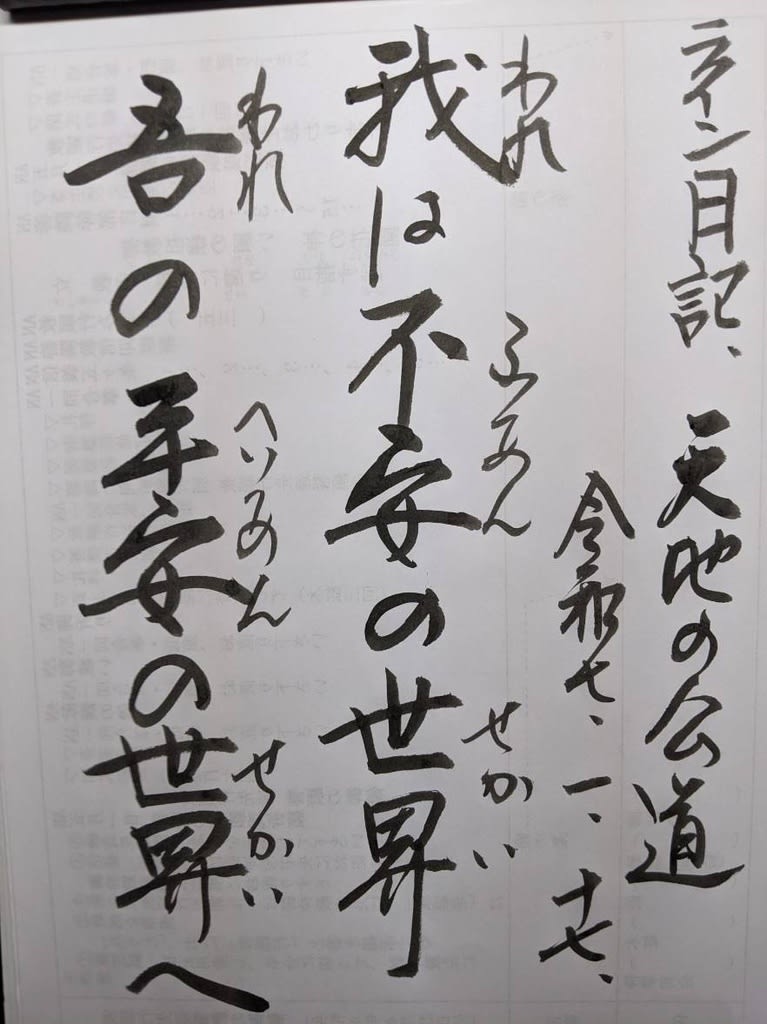 ライン日記、 天地の公道
令和七、一、十七、
われ ふあん せかい
我は不安の世界
われ へいあん せかい
吾の平安の世界へ